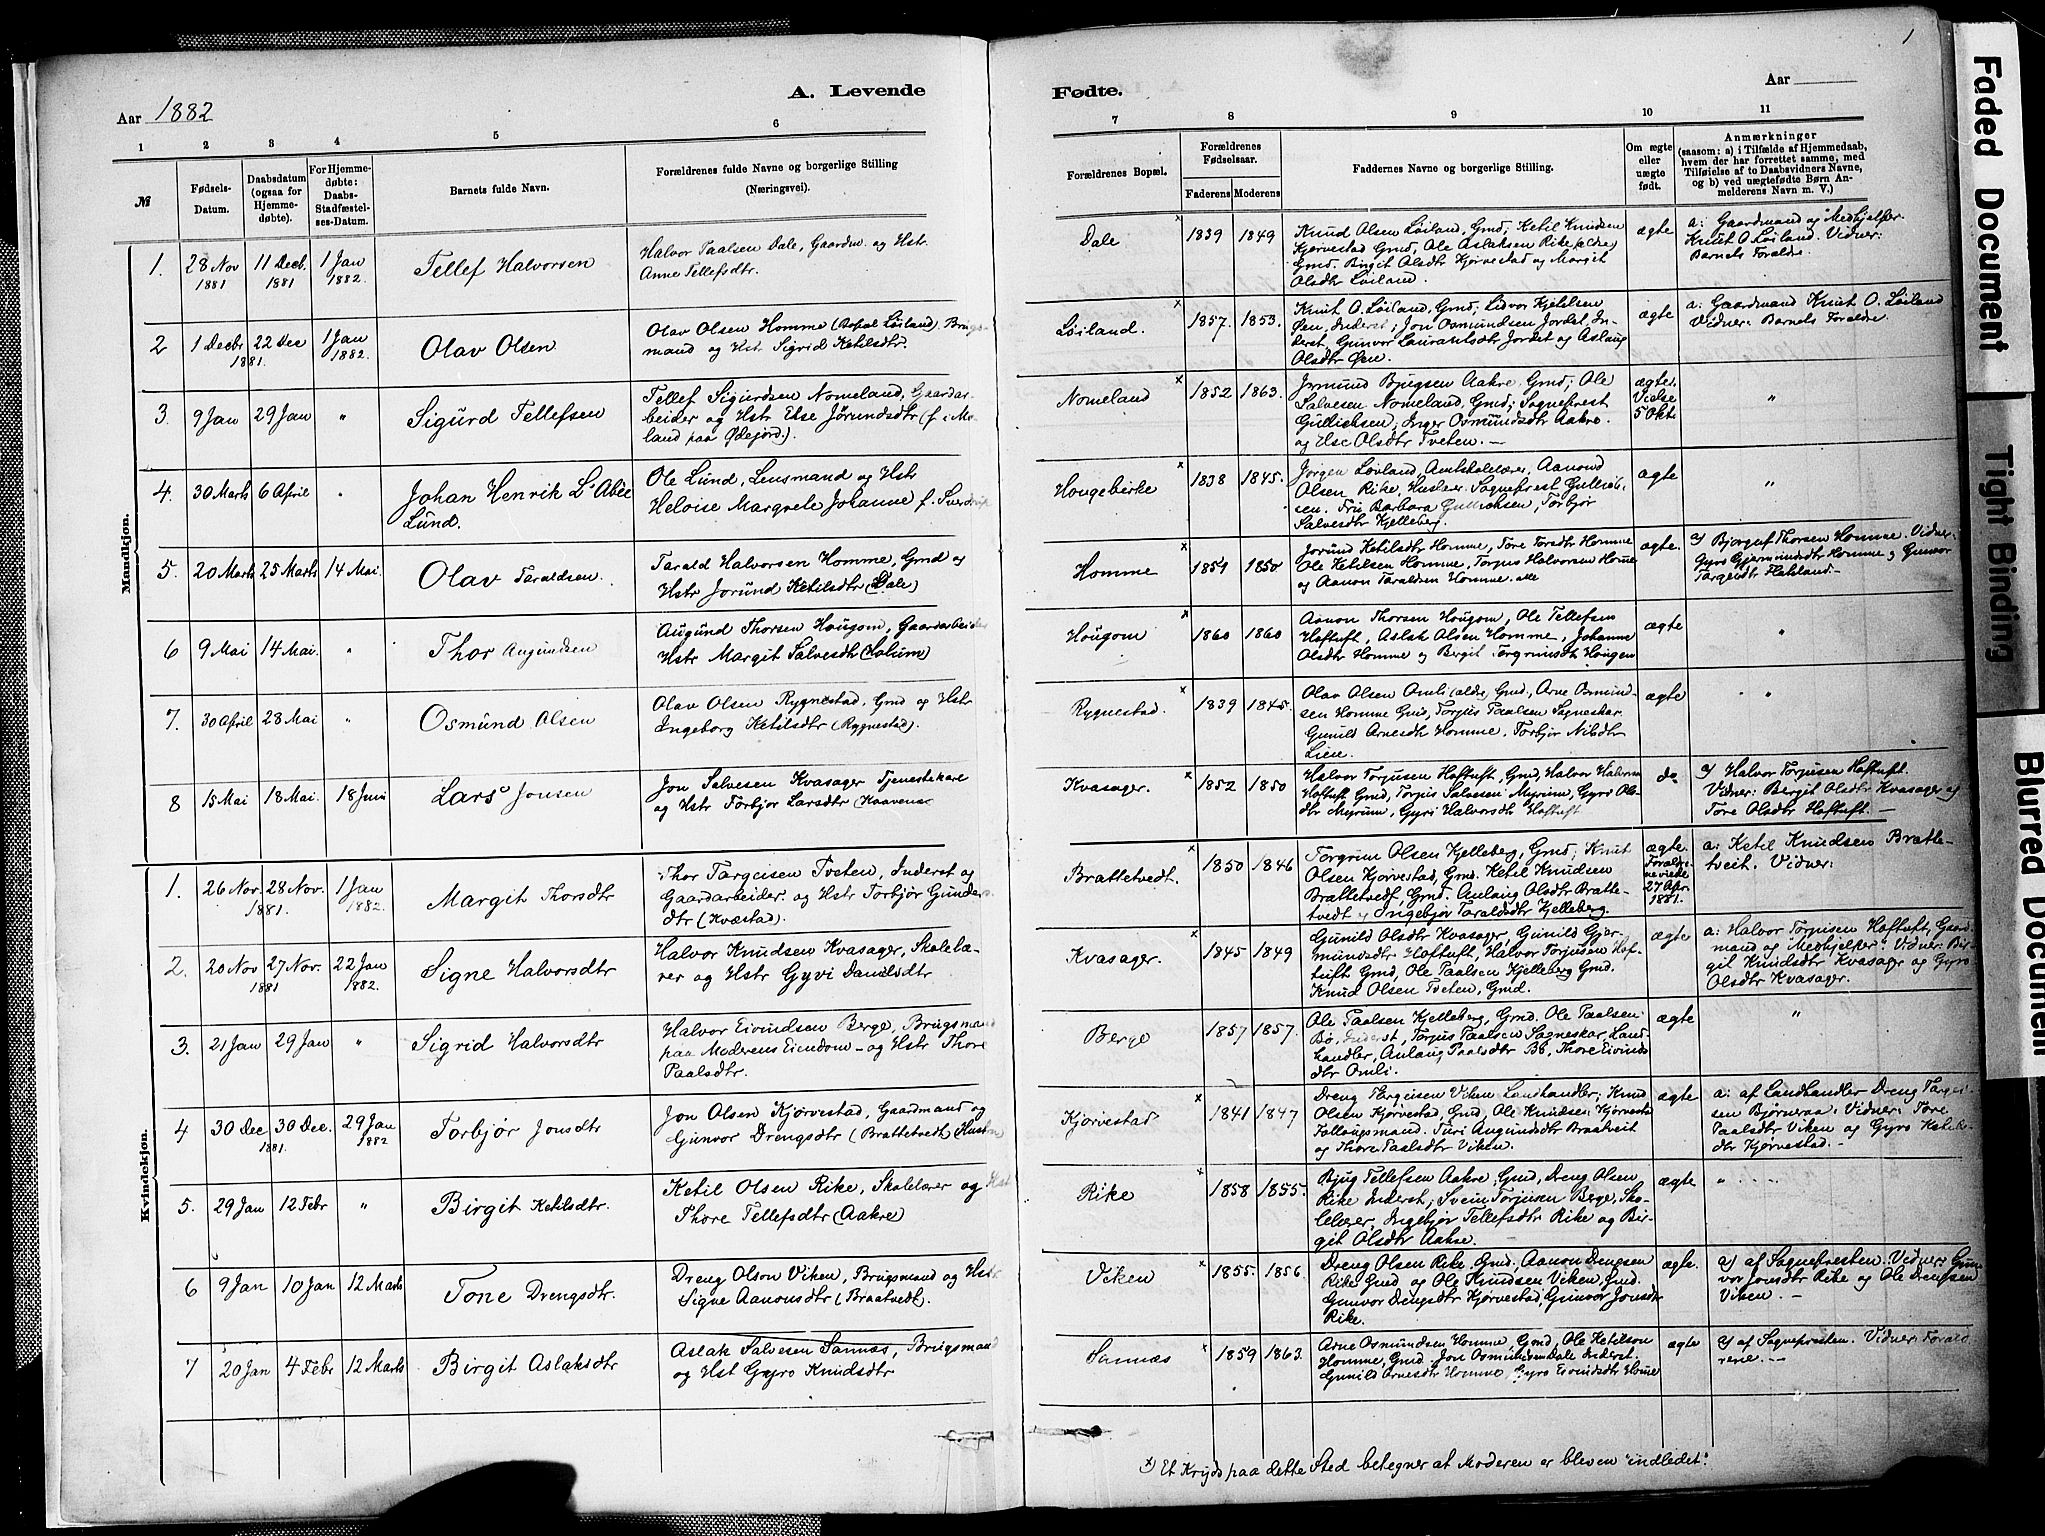 A. Levende
Aar 1882
1 2 3 4 5 6
№
Fødsels-
Datum.
Daabsdatum
(ogsaa for
Hjemme-
døbte).
For Hjemme-
døbte:
Daabs-
Stadfæstel-
ses-Datum.
Barnets fulde Navn.
Forældrenes fulde Navne og borgerlige Stilling
(Næringsvei).
Mandkjøn.
1. 28 Nov 1881 11 Decb. 1881 1 Jan 1882. Tellef Halvorsen
Halvor Paalsen Dale, Gaardm. og Hstr.
Anne Tellefsdtr.
2 1 Decbr 22 Dec 1881. 1 Jan 1882. Olav Olsen
Olav Olsen Homme (Bopæl Løiland), Brugs-
mand og Hstr Sigrid Ketilsdtr.
3. 9 Jan 29 Jan " Sigurd Tellefsen
Tellef Sigurdsen Nomeland, Gaardar-
beider og Hstr Else Jørundsdtr (f. i Mo-
land paa Ødejord).
4. 30 Marts 6 April " Johan Henrik L'Abée
Lund.
Ole Lund, Lensmand og Hstr
Heloise Margrete Johanne f. Sverdrup
5. 20 Marts 25 Marts 14 Mai. Olav Taraldsen.
Tarald Halvorsen Homme, Gmd og
Hstr Jorund Ketilsdtr (Dale)
6 9 Mai 14 Mai. " Thor Augundsen
Augund Thorsen Hougom, Gaardarbeider
Hstr Margit Salvesdtr (Holum)
7. 30 April 28 Mai " Osmund Olsen
Olav Olsen Rygnestad, Gmd og Hstr
Ingeborg Ketilsdtr (Rygnestad).
8 15 Mai 18 Mai. 18 Juni Lars Jonsen
Jon Salvesen Kvasager Tjenestekarl
og Hstr Torbjør Larsdtr
Kvindekjøn.
1. 26 Nov. 28 Nov. 1881. 1 Jan 1882. Margit Thorsdtr
Thor Targeisen Tveten, Inderst og
Gaardarbeider og Hstr Torbjør Gunders-
dtr (Kvæstad).
2. 20 Nov 27 Nov. 1881 22 Jan 1882. Signe Halvorsdtr
Halvor Knudsen Kvasager, Skolelæ-
rer og Hstr Gyvi Danielsdtr
3. 21 Jan 29 Jan " Sigrid Halvorsdtr
Halvor Eivindsen Berge, Brugsmand
paa Moderens Eiendom - og Hstr Thore
Paalsdtr.
4 30 Dec 30 Dec. 1881. 29 Jan 1882 Torbjør Jonsdtr
Jon Olsen Kjørvestad, Gaardmand og
Gunvor Drengsdtr (Brattetvedt) Hustru
5. 29 Jan 12 Febr " Birgit Ketilsdtr.
Ketil Olsen Rike, Skolelærer og Hst
Thore Tellefsdtr (Aakre)
6 9 Jan 10 Jan 12 Marts Tone Drengsdtr.
Dreng Olson Viken, Brugsmand og Hstr
Signe Aanonsdtr (Braatvedt).
7 20 Jan 4 Febr 12 Marts Birgit Aslaksdtr
Aslak Salvesen Sannæs, Brugsmand
og Hst Gyro Knudsdtr
1
Fødte.
Aar
7 8 9 10 11
Forældrenes Bopæl.
Forældrenes
Fødselsaar.
Faderens Moderens
Faddernes Navne og borgerlige Stilling.
Om ægte
eller
uægte
født.
Anmærkninger
(saasom: a) i Tilfælde af Hjemmedaab,
hvem der har forrettet samme, med
Tilføielse af to Daabsvidners Navne,
og b) ved uægtefødte Børn An-
melderens Navn m. V.)
Dale x 1839 1849
Knud Olsen Løiland, Gmd, Ketil Knudsen
Kjørvestad Gmd, Ole Aslaksen Rike (ældre)
Gmd. Birgit Olsdtr Kjørvestad og Margit
Olsdtr Løiland.
ægte
a: Gaardmand og Medhjelper
Knut O. Løiland. Vidner:
Barnets Forældre.
Løiland. x 1857. 1853.
Knut O. Løiland, Gmd; Lidvor Kjetilsen
Øen, Inderst; Jon Osmundsen Jordet, In-
derst, Gunvor Lauvantsdtr Jordet og Aslaug
Olsdtr Øen.
ægte
a: Gaardmand Knut O. Løiland
Vidner: Barnets Forældre.
Nomeland x 1852 1863.
Jormund Bjugsen Aakre Gmd; Ole
Salvesen Nomeland, Gmd; Sogneprest
Gullichsen; Inger Osmundsdtr Aakre
og Else Olsdtr Tveten. —
ægte.
Vielse
5 Okt
"
Hougebirke x 1838 1845.
Jørgen Løvland, Amtskolelærer, Aanond
Olsen Rike, Huslærer Sogneprest Gullich-
sen. Fru Barbara Gullichsen, Torbjør
Salvesdtr Kjelleberg.
ægte
"
Homme x 1851 1850
Jorund Ketilsdtr Homme, Tore Torsdtr Homme
Ole Ketilsen Homme, Torjus Halvorsen Homme
og Aanon Taraldsen Homme. alle
ægte.
a) Bjorguf Thorsen Homme. Vidner:
Gyro Gjermundsdtr Homme og Gunvor
Targeidtr Flateland—
Hougom x 1860 1860
Aanon Thorsen Hougom, Ole Tellefsen
Hoftuft, Aslak Olsen Homme, Johanne
Olsdtr Homme og Bergit Torgrimsdtr Hougen
ægte
"
Rygnestad. x 1839 1845.
Olav Olsen Omli (ældre) Gmd, Arne Osmund-
sen Homme Gmd, Torjus Paalsen Sagneskar
Gunild Arnesdtr Homme, Torbjør Nilsdtr
Lien.
ægte
"
Kvasager. x 1852 1850
Halvor Torjusen Hoftuft, Gmd, Halvor Halvors
Hoftuft Gmd, Torjus Salvesen Myrum, Gyro Ols-
dtr Myrum, Gyri Halvorsdtr Hoftuft.
do
a) Halvor Torjusen Hoftuft.
Vidner: Bergit Olsdtr Kvasager og
Tore Olsdtr Hoftuft. —
Brattetvedt. x 1850 1846
Torgrim Olsen Kjelleberg, Gmd; Knut
Olsen Kjørvestad, Gmd. Ketil Knudsen
Brattetvedt, Gmd. Aulaug Olsdtr Bratte-
tvedt og Ingebjør Taraldsdtr Kjelleberg.
ægte.
Foræld-
reneviede
27 Apr.
1881.
a: Ketil Knudsen Bratte-
tveit. Vidner:
Kvasager. x 1845 1849
Gunild Olsdtr Kvasager, Gunild Gjer-
mundsdtr Hoftuft, Halvor Torjusen Hof-
tuft Gmd, Ole Paalsen Kjelleberg Gmd.
Knud Olsen Tveten, Gmd.
ægte
a: Halvor Torjusen Hoftuft, Gaard-
mand og Medhjelper. Vidner: Bir-
git Knudsdtr Kvasager og Gyro
Olsdtr Kvasager.
Berge 1857 1857.
Ole Paalsen Kjelleberg, Gmd. Ole Paalsen
Bø, Inderst, Torjus Paalsen Sagneskar, Land-
handler, Aulaug Paalsdtr Bø, Thore Eivinds
dtr Omli.
ægte
"
Kjørvestad x 1841 1847
Dreng Targeisen Viken Landhandler; Knud
Olsen Kjørvestad, Gmd, Ole Knudsen Kjørvestad
Follaugsmand. Turi Augundsdtr Braatveit
og Thore Paalsdtr Viken.
ægte
a: af Landhandler Dreng Targei-
sen Bjørnraa. Vidner: Tore
Paalsdtr Viken og Gyro Ketils-
dtr Kjørvestad. —
Rike x 1858 1855.
Bjug Tellefsen Aakre, Gmd, Dreng Olsen
Rike Inderst; Svein Torjusen Berge, Sko-
lelærer, Ingebjør Tellefsdtr Rike og Bir-
git Olsdtr Aakre.
ægte
"
Viken x 1855. 1856.
Dreng Olsen Rike, Gmd, Aanon Drengsen
Rike Gmd og Ole Knudsen Viken, Gmd.
Gunvor Drengsdtr Kjørvestad, Gunvor Jonsdtr
Rike.
ægte.
a) af Sognepresten. Vidner: Gun-
vor Jonsdtr Rike og Ole Drengsen
Viken. —
Sannæs x 1859 1863.
Arne Osmundsen Homme, Gmd, Ole Ketilson
Homme, Gmd. Jon Osmundsen Dale Inderst.
Gunild Arnesdtr Homme, Gyro Eivindsdtr Homme
ægte
a) af Sognepresten. Vidner: Foræld-
rene. —
x) Et Kryds paa dette Sted betegner at Moderen er bleven "indledet".
Faded Document
Tight Binding
Blurred Document